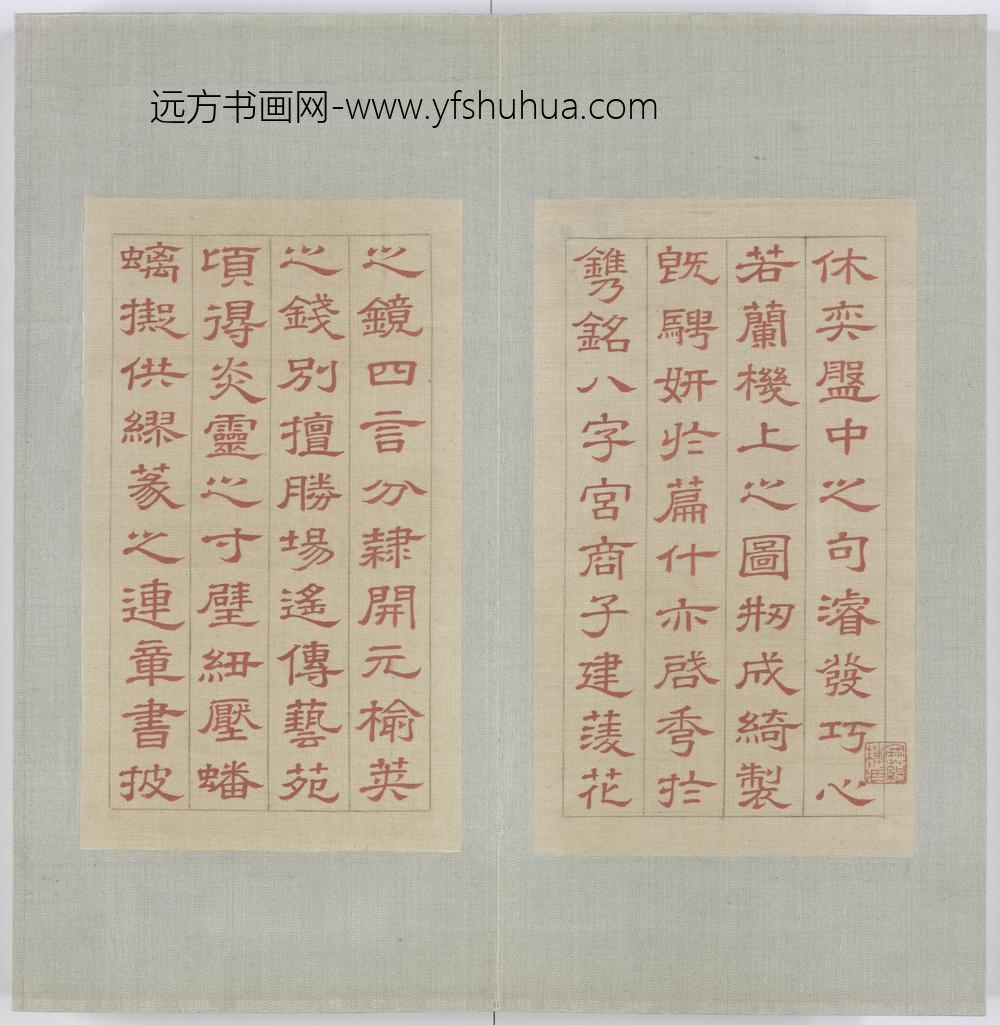 远方书画网-www.yfshuhua.com
休奕盤中之句濬發巧心
若蘭機上之圖刱成綺製
既騁妍於篇什亦啓秀於
鐫銘八字宮商子建薐花
之鏡四言分隸開元榆莢
之錢別擅勝場遙傳藝苑
頃得炎靈之寸璧紐壓蟠
螭供繆篆之連章書披